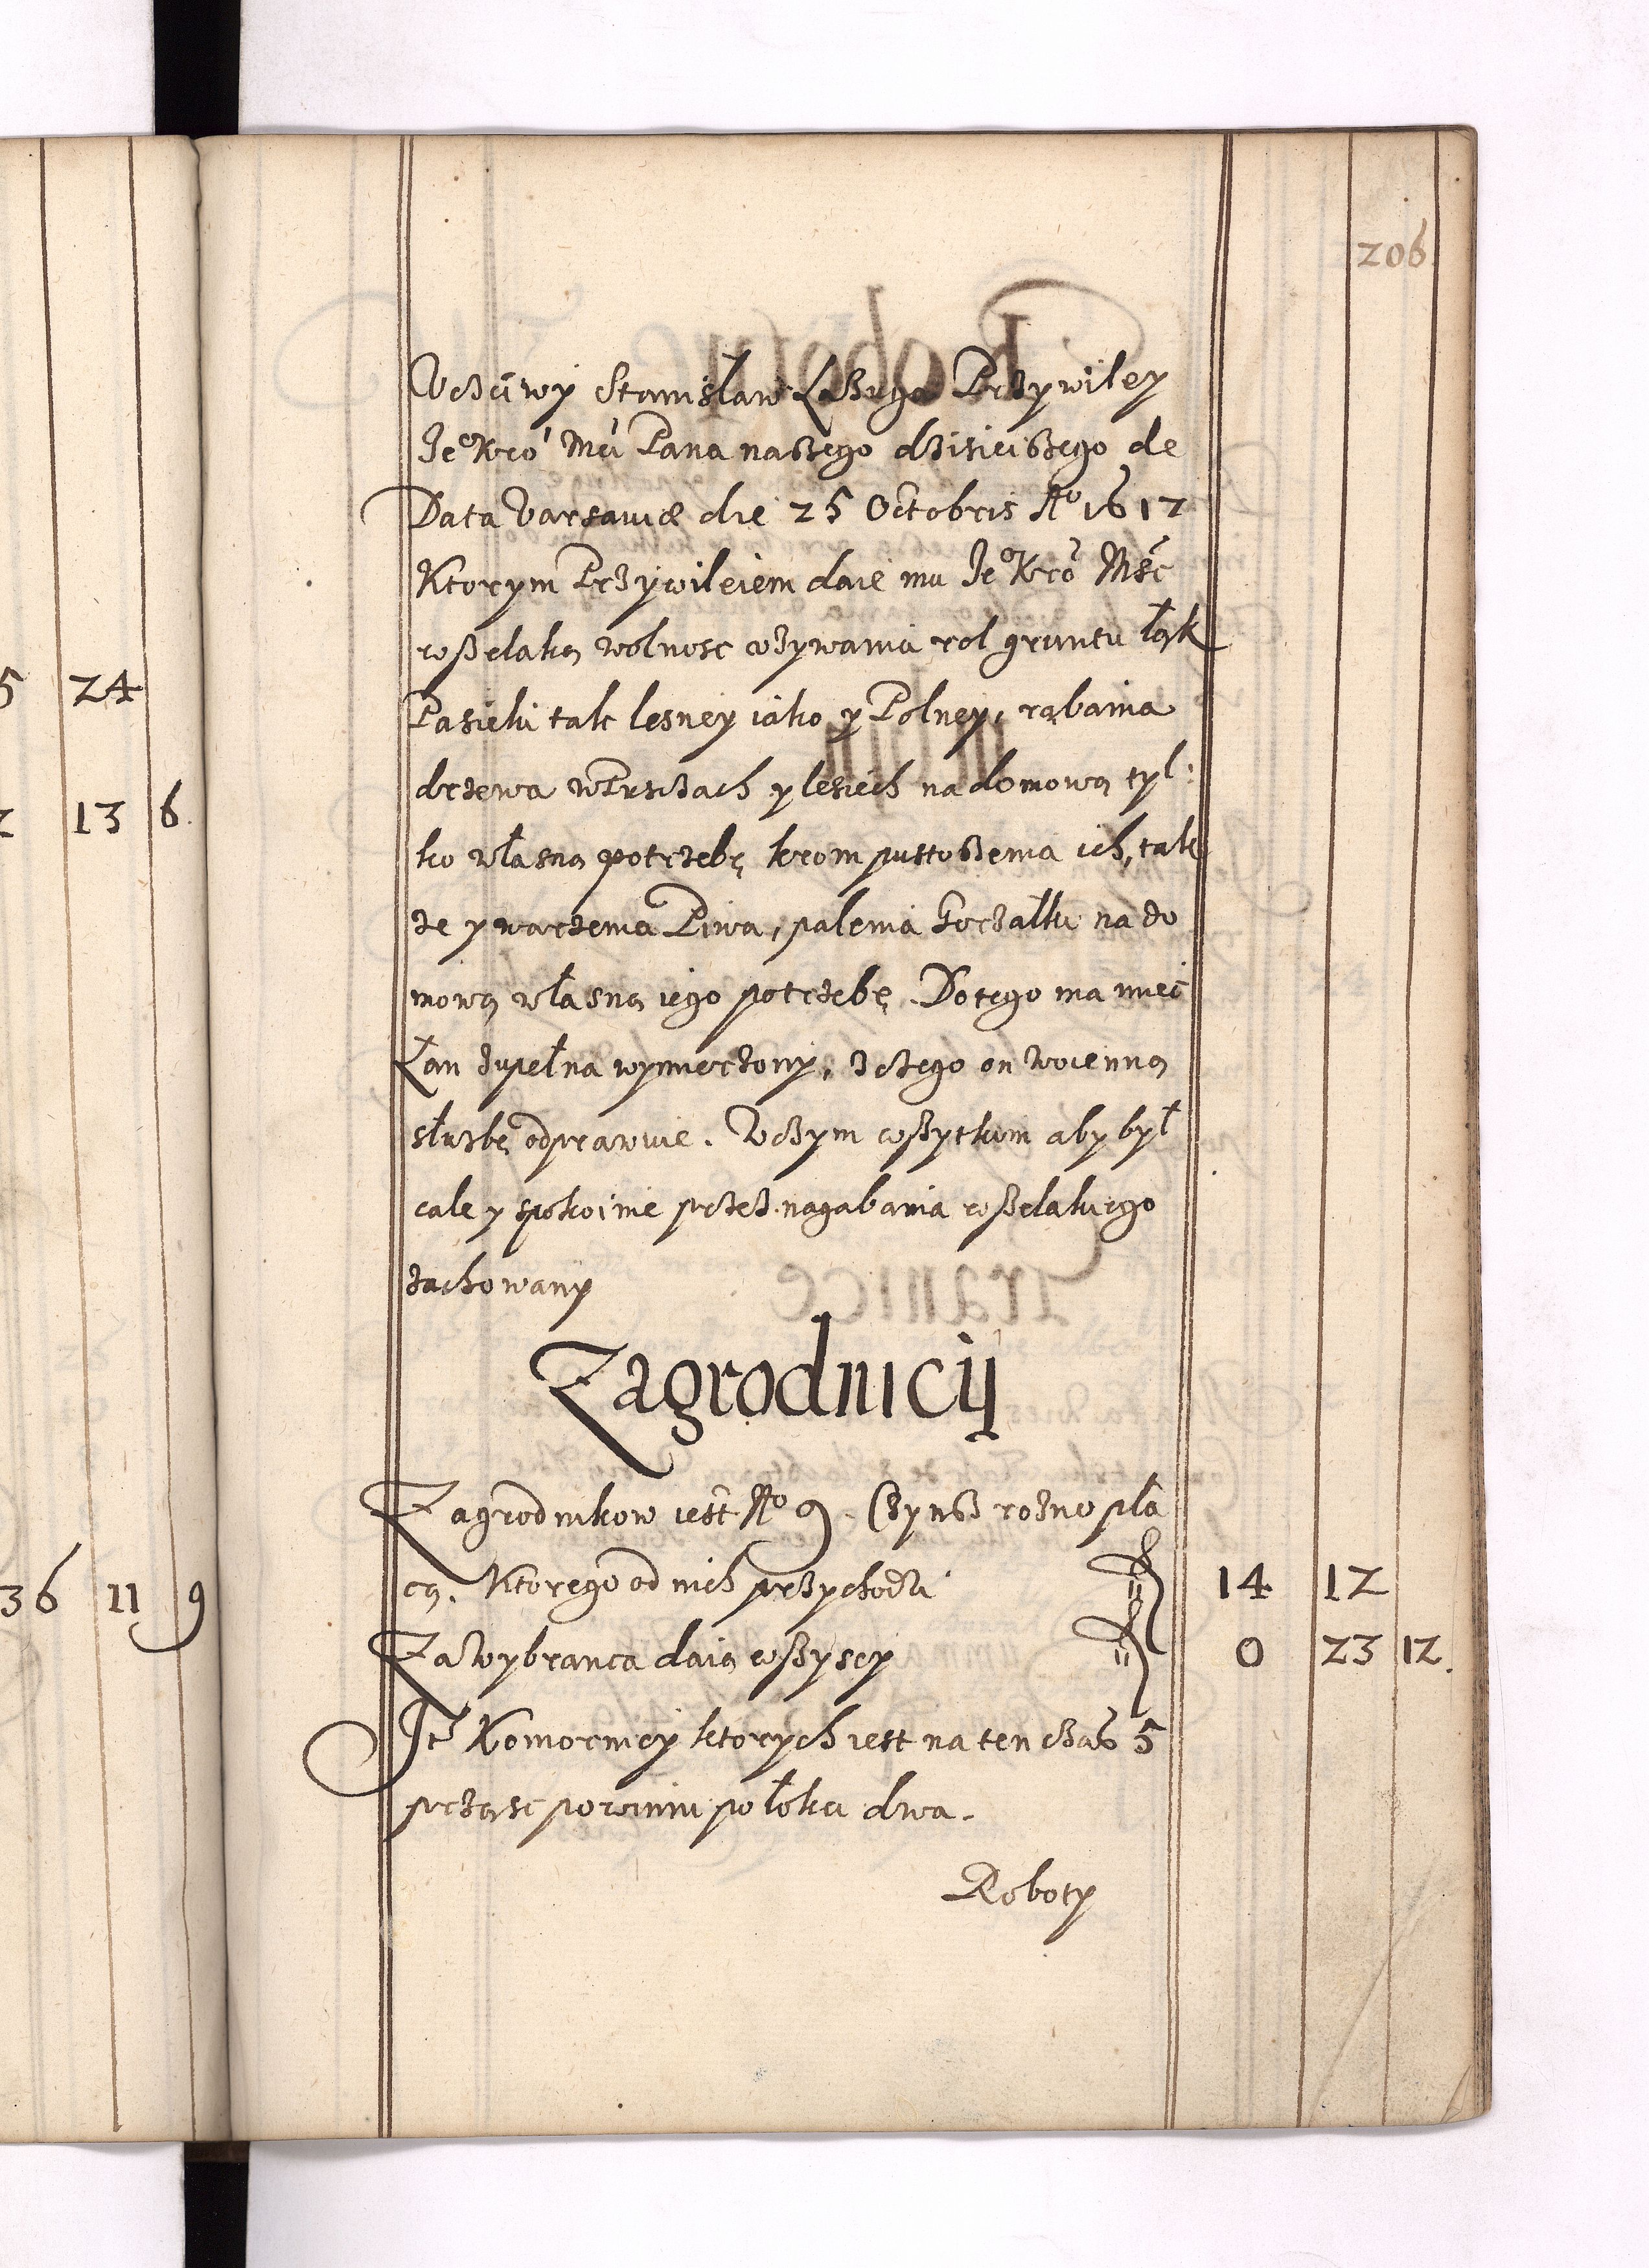 206
Uczciwy Stanisław Przywiley
Je⁰ Kró Mci Pana naszego dzisieiszego de
Data Varsaviæ die 25 Octobris A⁰ 1612
Ktorym Przywileiem daie mu Je⁰ Kro Mśc
wszelaką wolnosc używania rol gruntu łąk
Pasieki tak lesney iako y Polney, rąbania
drzewa w Pusczach y lesiech na domową tyl:
ko własną potrzebę krom pustoszenia ich, tak
ze y warzenia Piwa, palenia Gorzałki na do
mową własną iego potrzebę. Do tego ma miec
Łan zupełna wymierzony, z ktego on woienną
służbę odprawuie. W czym wszytkim aby był
cale y spokoinie przez nagabania wszelakiego
zachowany
Zagrodnicy
Zagrodnikow iest N⁰ 9. Czynsz rożno pła
cą. Ktorego od nich przychodzi 14 12
Za Wybranca daią wszyscy 0 23 12.
Jt Komornicy ktorych iest na ten czas 5
prząsc powinni połoku dwa.
Roboty
5 24
13 6.
36 11 9